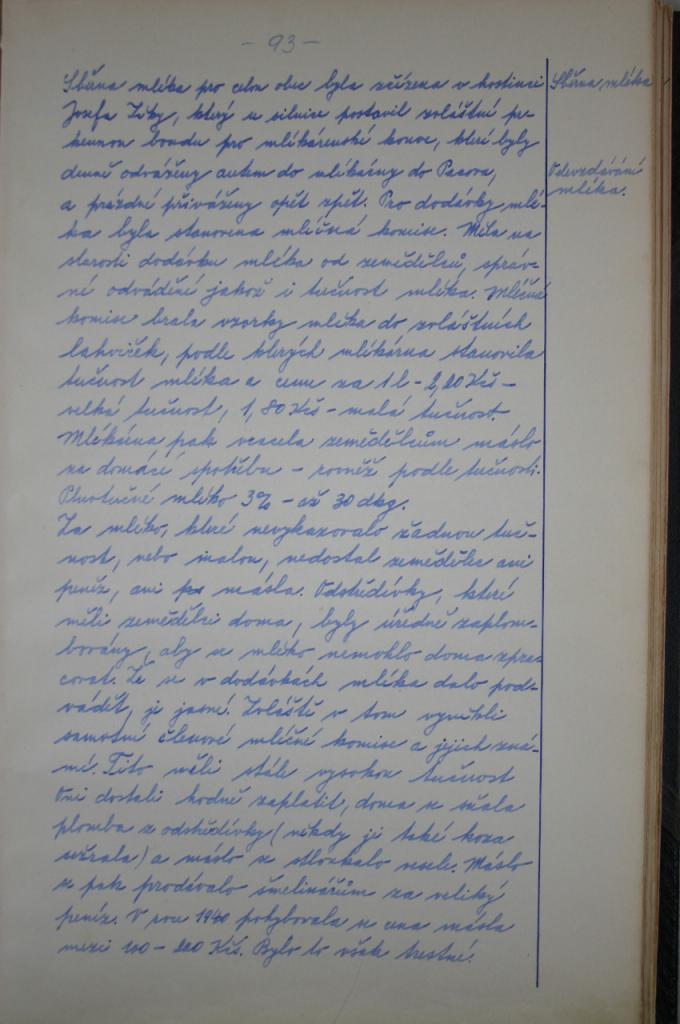 - 93 -
Sběrna mléka pro celou obec byla zřízena v hostinci
Josefa Ziky, který u silnice postavil zvláštní pr-
kennou boudu pro mlékárenské konve, které byly
denně odváženy autem do mlékárny do Pacova,
a prázdné přiváženy opět zpět. Pro dodávky mlé-
ka byla stanovena mléčná komise. Měla na
starosti dodávku mléka od zemědělců, správ-
né odvádění jakož i tučnost mléka. Mléčná
komise brala vzorky mléka do zvláštních
lahviček, podle kterých mlékárna stanovila
tučnost mléka a cenu za 1 l - 2,20 Kčs -
velká tučnost, 1,80 Kčs - malá tučnost.
Mlékárna pak vracela zemědělcům máslo
na domácí spotřebu - rovněž podle tučnosti.
Plnotučné mléko 3% - až 30 dkg.
Za mléko, které nevykazovalo žádnou tuč-
nost, nebo malou, nedostal zemědělec ani
peníz, ani másla. Odstředivky, které
měli zemědělci doma, byly úředně zaplom-
bovány, aby se mléko nemohlo doma zpra-
covat. Že se v dodávkách mléka dalo pod-
vádět, je jasné. Zvláště v tom vynikli
samotní členové mléčné komise a jejich zná-
mí. Tito měli stále vysokou tučnost
Oni dostali hodně zaplatit, doma se sňala
plomba z odstředivky (někdy ji také koza
sežrala) a máslo se stloukalo vesele. Máslo
se pak prodávalo šmelinářům za veliký
peníz. V roce 1940 pohybovala se cena másla
mezi 100 - 200 Kčs. Bylo to však trestné.
Sběrna mléka
Odevzdávání
mléka.